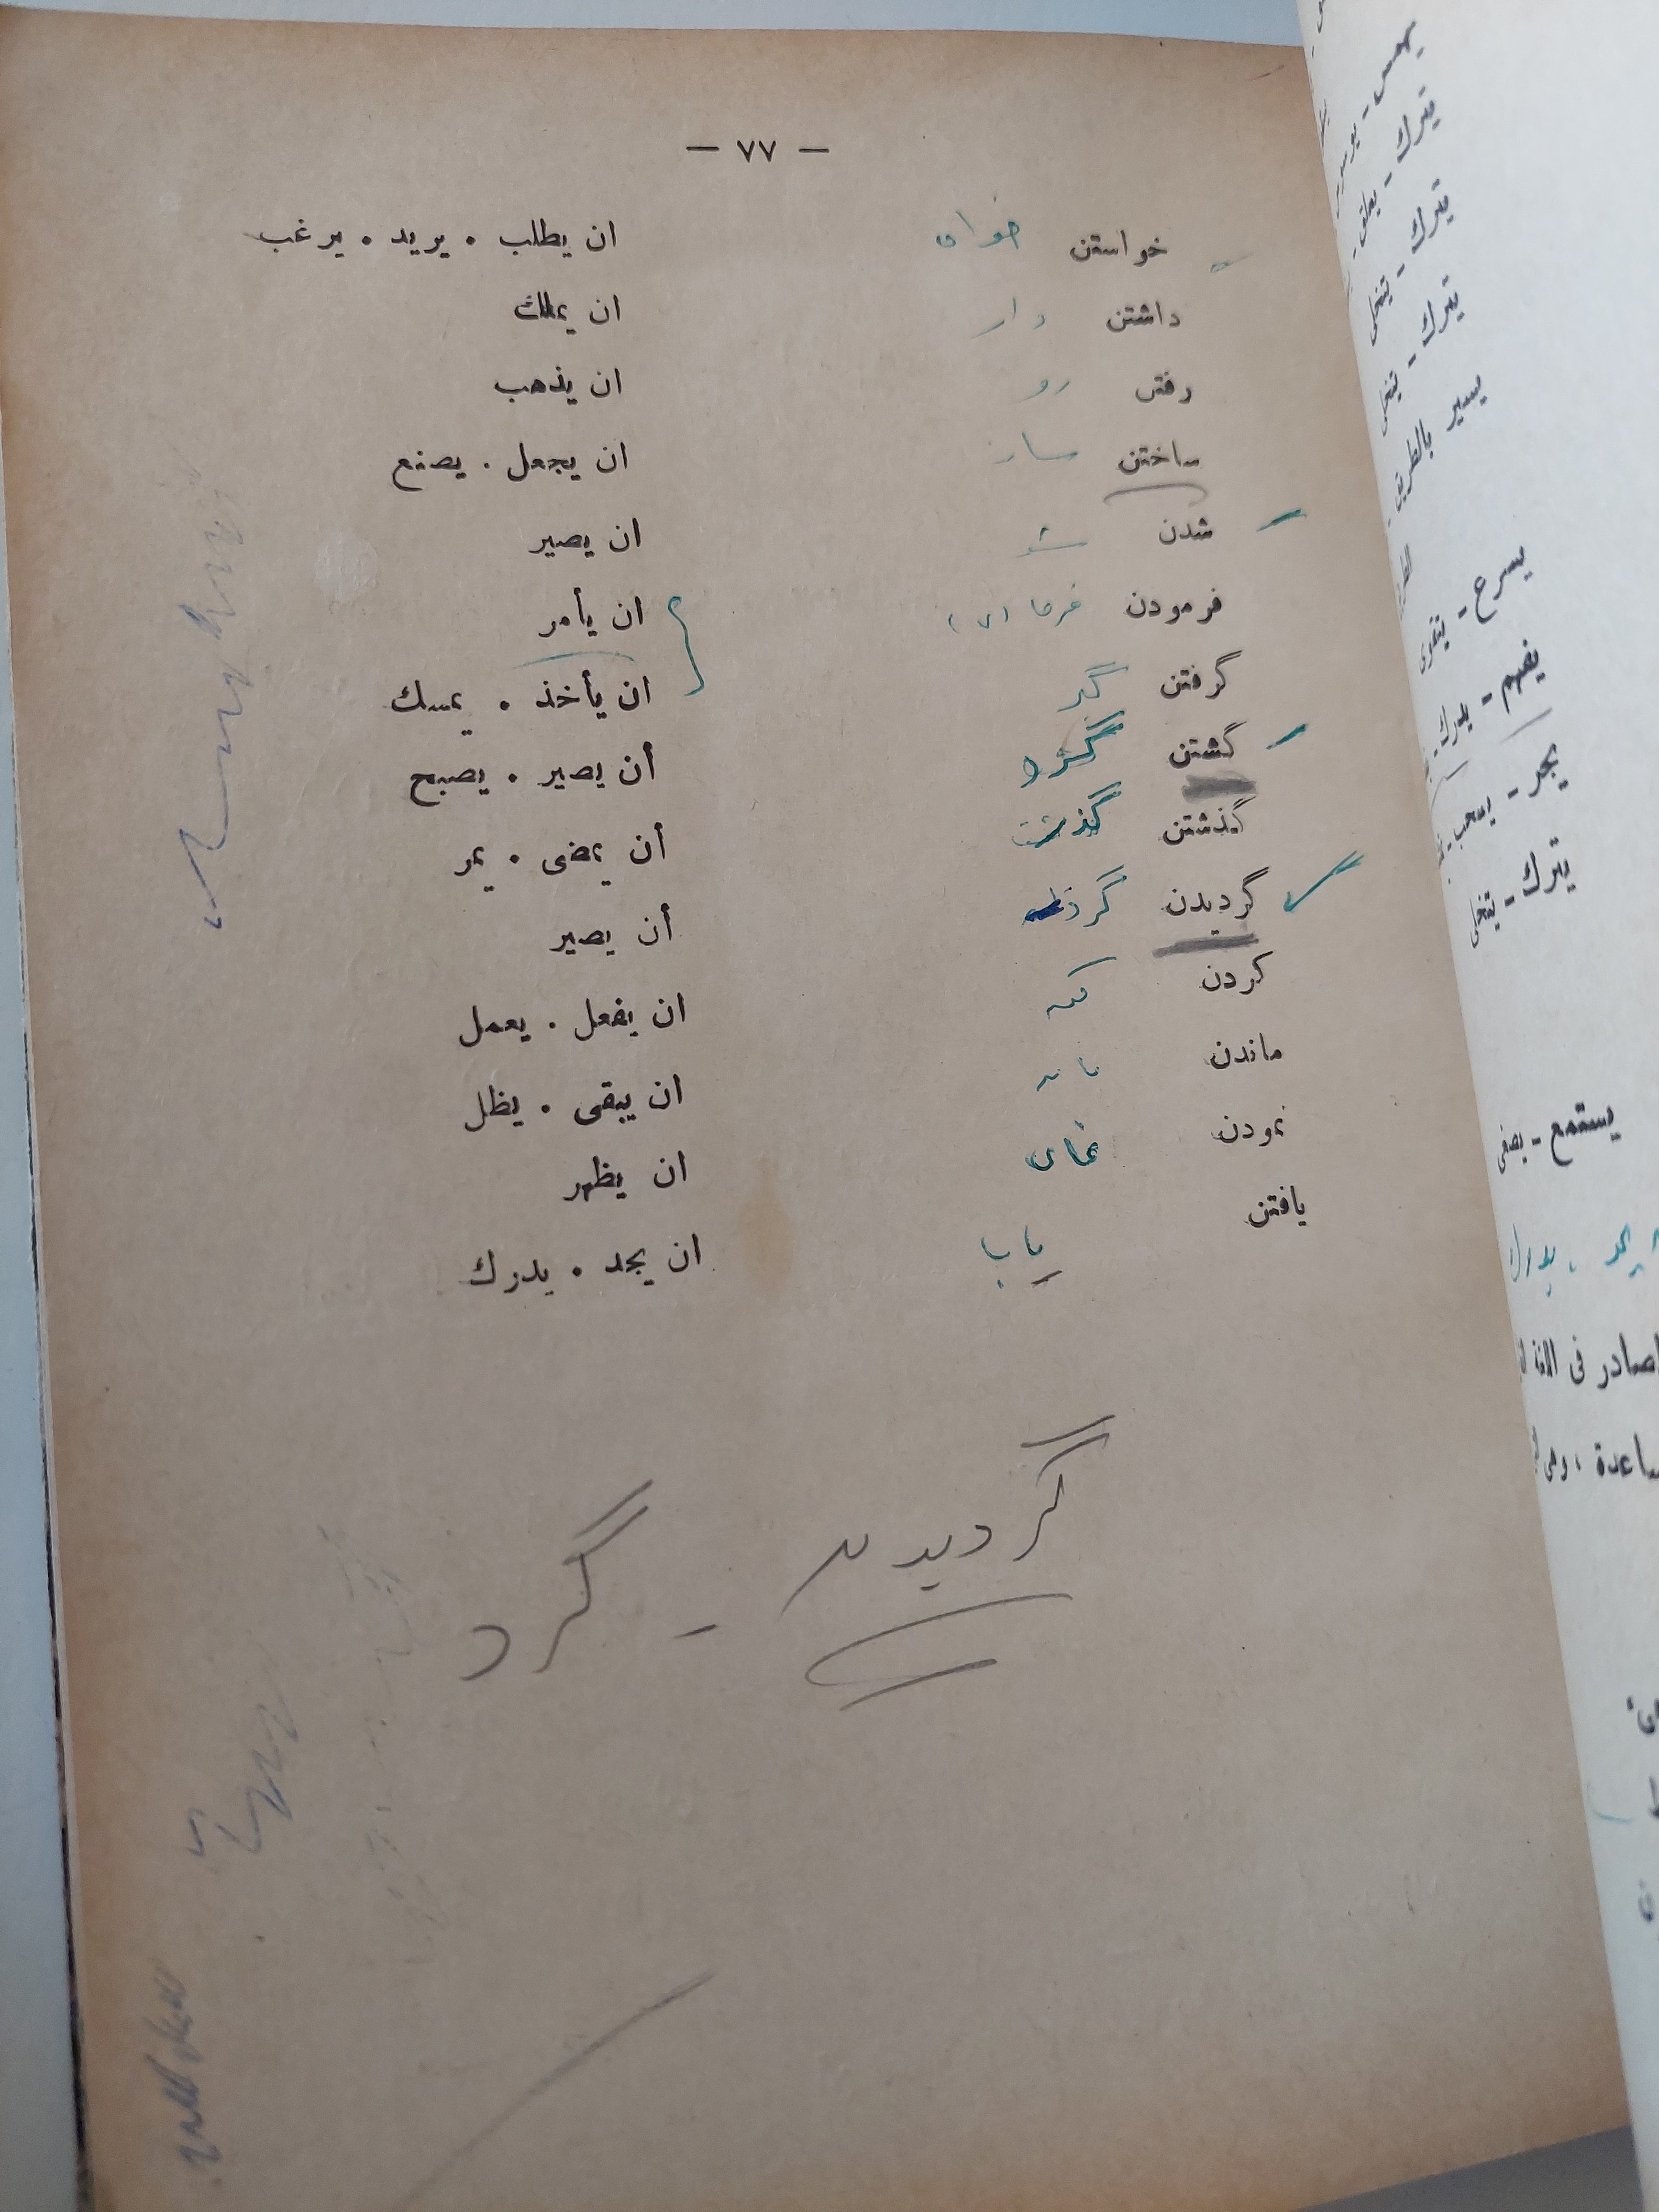 — ٧٧ —
خواستن خواه ان يطلب . يريد . يرغب
داشتن دار ان يملك
رفتن رو ان يذهب
ساختن ساز ان يجعل . يصنع
شدن شو ان يصير
فرمودن فرما (ى) ان يأمر
گرفتن گير ان يأخذ . يمسك
گشتن گرد أن يصير . يصبح
گذشتن گذر أن يمضى . يمر
گرديدن گرد أن يصير
كردن كن ان يفعل . يعمل
ماندن مان ان يبقى . يظل
نمودن نماى ان يظهر
يافتن ياب ان يجد . يدرك
گرديدن - گرد
يترك - يتخلى
يترك - يتخلى
يسير بالطريق
يسرع - يتقوى
يفهم - يدرك
يجر - يسحب
يترك - يتخلى
يستمع - يصغى
يجد . يدرك